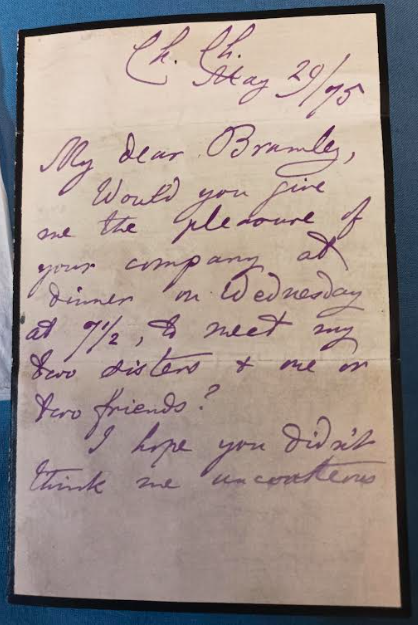 Ch. Ch.
May 29/75
My dear Bramley,
Would you give
me the pleasure of
your company at
dinner on Wednesday
at 7½, to meet my
two sisters & one or
two friends?
I hope you didn't
think me uncourteous